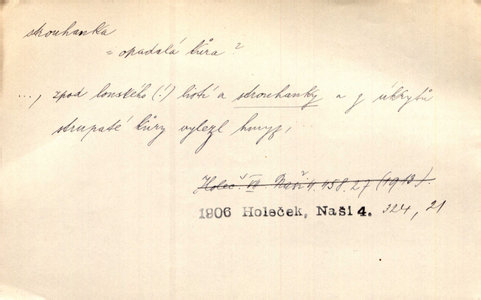 skrouhanka
= opadalá kůra?
..., zpod lonského (!) listí a skrouhanky a z úkrytů
strupaté kůry vylezl hmyz,
Holeč. VI Naši 4. 458.27 (1913).
1906 Holeček, Naši 4. 324, 21